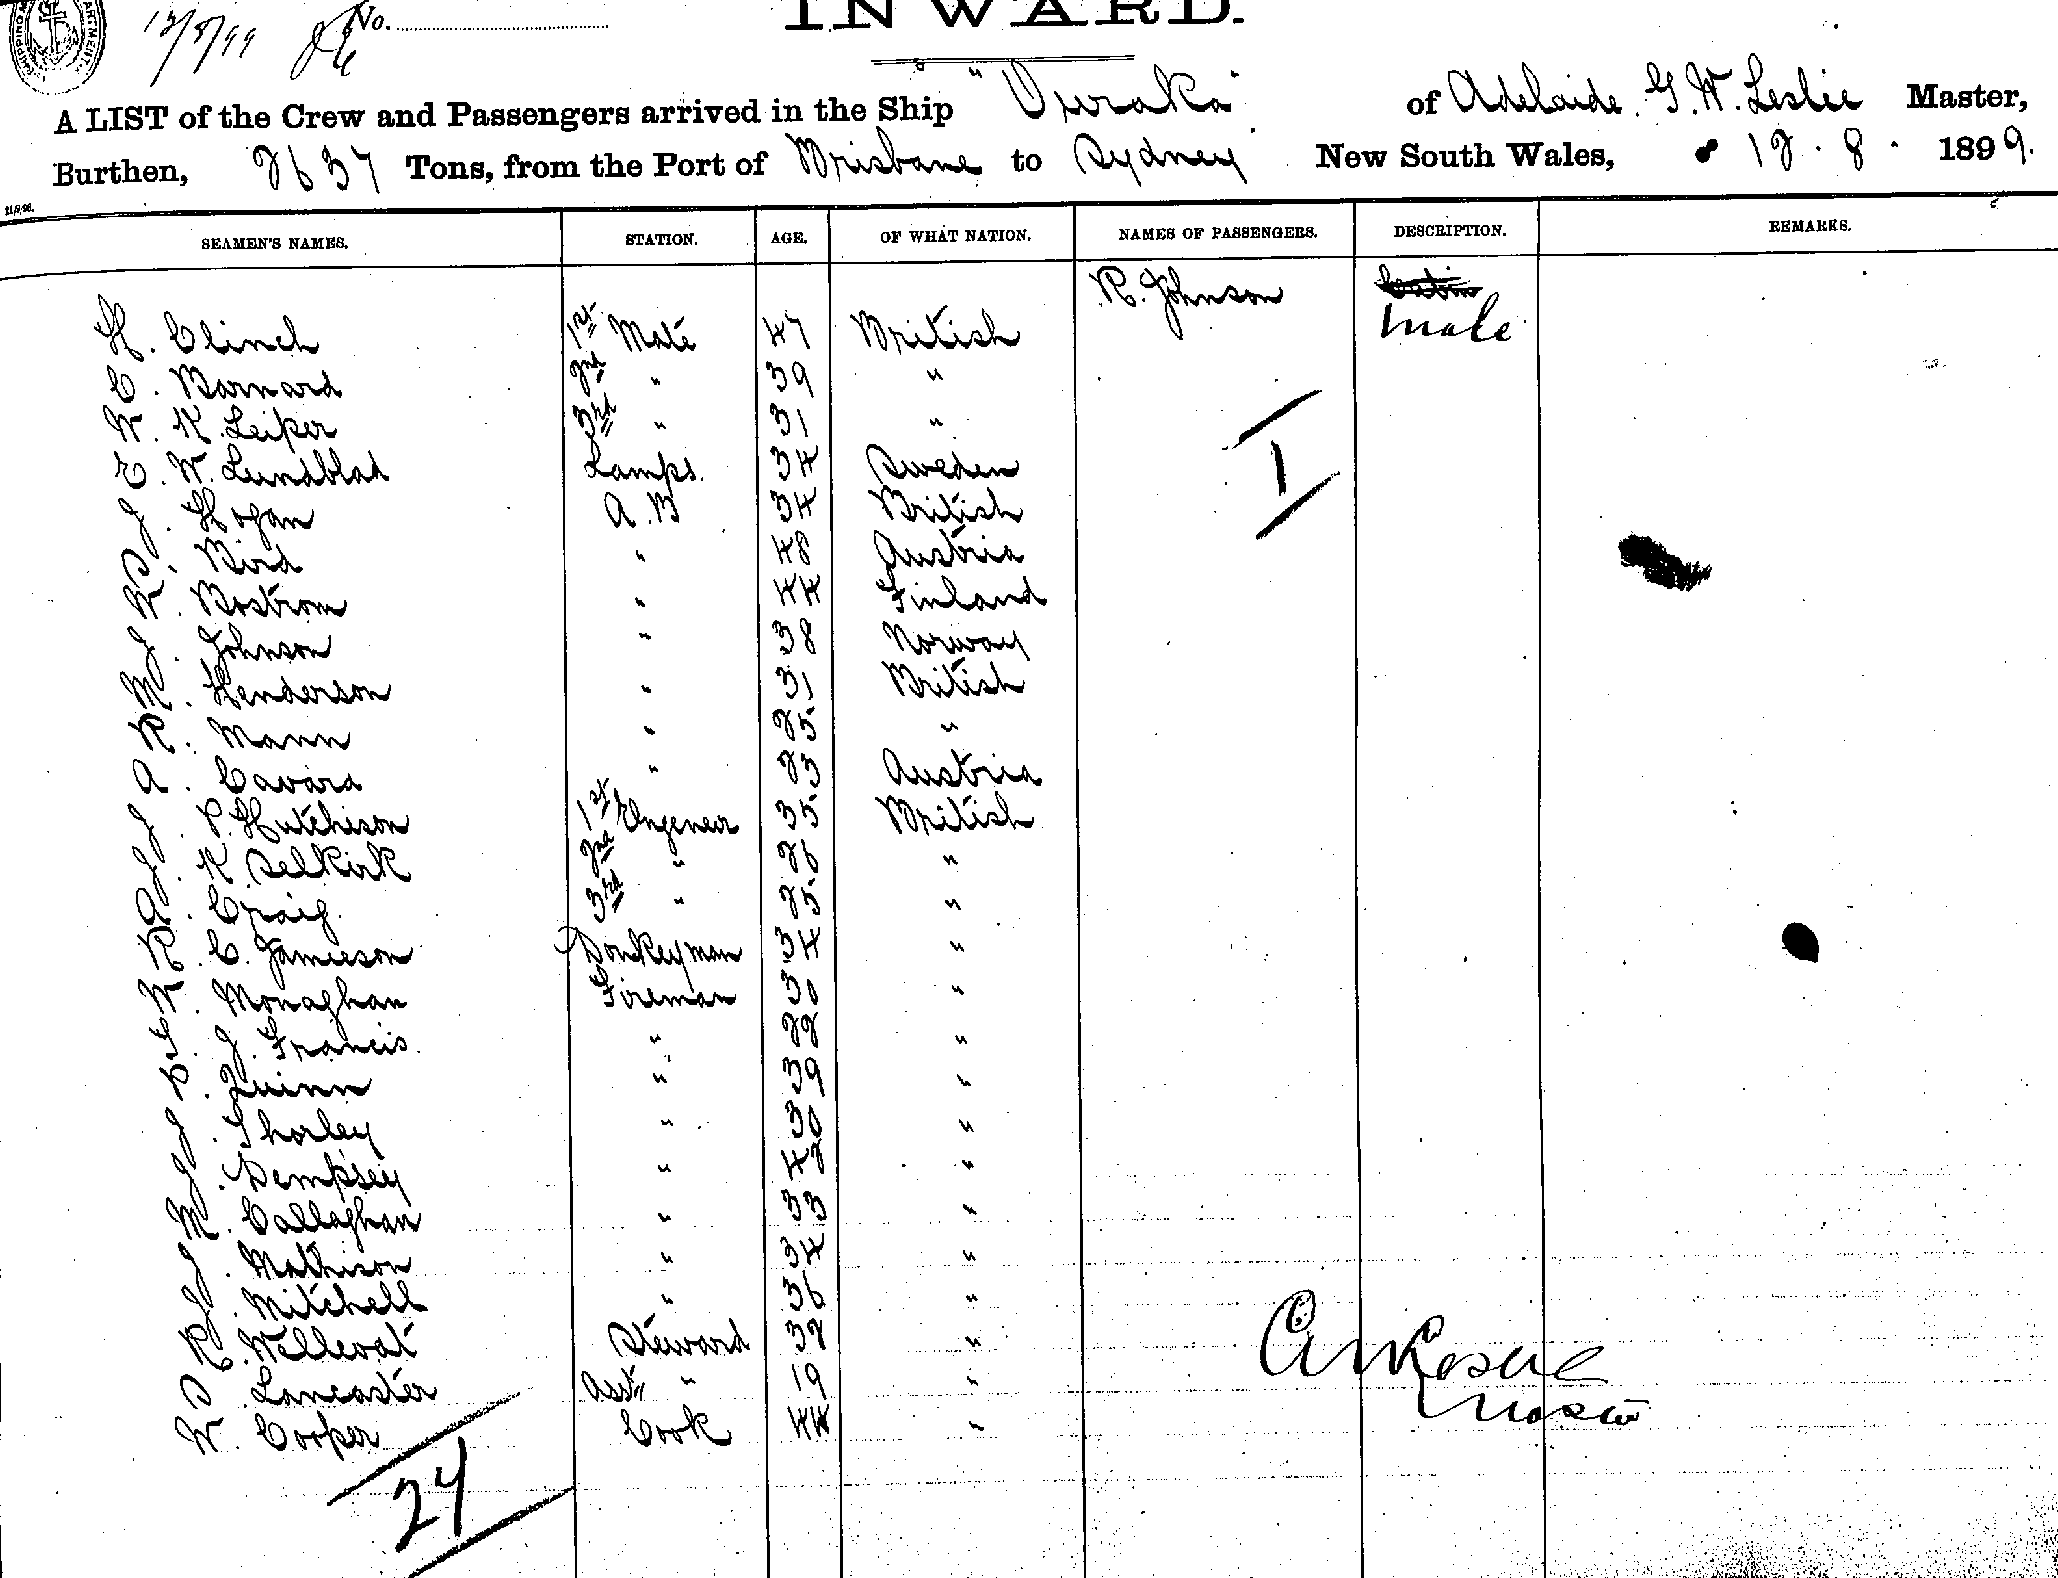 12/8/99 No.
INWARD.
A LIST of the Crew and Passengers arrived in the Ship "Ouraka" of Adelaide. G. W. Leslie Master,
Burthen, 2637 Tons, from the Port of Brisbane to Sydney New South Wales, 12 . 8 . 1899.
SEAMEN'S NAMES. STATION. AGE. OF WHAT NATION. NAMES OF PASSENGERS. DESCRIPTION. REMARKS.
R. Johnson
H. Clinch 1st Mate 47 British Male
C. Barnard 2nd " 39 "
W. R. Leiper 3rd " 31 "
E. W. Lundblad Lamps. 34 Sweden
J. Hogan A.B 34 British
1
P. Bird " 48 Austria
W. Bostrom " 44 Finland
J. Johnson " 38 Norway
M. Henderson " 31 British
R. Mann " 25 "
A. Cavara " 23 Austria
J. P. Hutchison 1st Engeneer 35 British
J. R. Selkirk 2nd " 26 "
A. Craig. 3rd " 25 "
R. C. Jamieson Donkeyman 34 "
W. Monaghan Fireman 30 "
F. J. Francis. " 22 "
P. Quinn " 39 "
J. Thorley " 30 "
J. Dempsey " 42 "
M. Callaghan " 33 "
J. Mathison " 34 "
J. Mitchell " 36 "
R. Wellevat Steward 32 "
S. Lancaster Asst " 19 "
W. Cooper Cook 44 "
Master
24